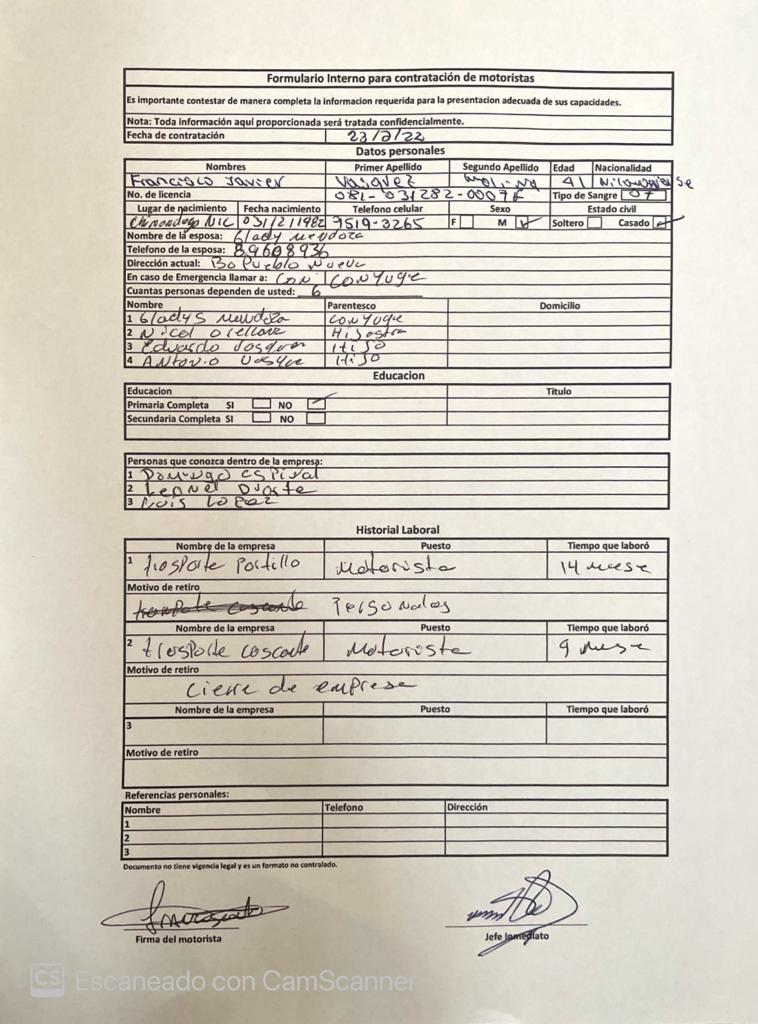 Formulario Interno para contratación de motoristas
Es importante contestar de manera completa la informacion requerida para la presentation adecuada de sus capacidades.
Nota: Toda información aquí proporcionada será tratada confidencialmente.
Fecha de contratación 23/2/22
Datos personales
Nombres Primer Apellido Segundo Apellido Edad Nacionalidad
Francisco Javier Vasquez Molina 41
No. de licencia 081-031282-0007F Tipo de Sangre
Lugar de nacimiento Fecha nacimiento Telefono celular Sexo Estado civil
NIC 03/12/1982 9519-3265 F M Soltero Casado
Nombre de la esposa: Glady Mendoza
Telefono de la esposa: 89608936
Dirección actual: Bo Pueblo Nuevo
En caso de Emergencia llamar a: CON CONYUGE
Cuantas personas dependen de usted: 6
Nombre Parentesco Domicilio
1 Gladys Mendoza Conyuge
2 Nicol Orellana Hijastra
3 Eduardo HiJo
4 Antonio HiJo
Educacion
Educacion Titulo
Primaria Completa SI NO
Secundaria Completa SI NO
Personas que conozca dentro de la empresa:
1 Domingo Espinal
2 Duarte
3 Luis Lopez
Historial Laboral
Nombre de la empresa Puesto Tiempo que laboró
1 trosporte Portillo Motorista 14 mese
Motivo de retiro
Personales
Nombre de la empresa Puesto Tiempo que laboró
2 trosporte coscate Motorista 9 mese
Motivo de retiro
cierre de emprese
Nombre de la empresa Puesto Tiempo que laboró
3
Motivo de retiro
Referencias personales:
Nombre Telefono Dirección
1
2
3
Documento no tiene vigencia legal y es un formato no contralado.
Firma del motorista Jefe Inmediato
CS Escaneado con CamScanner